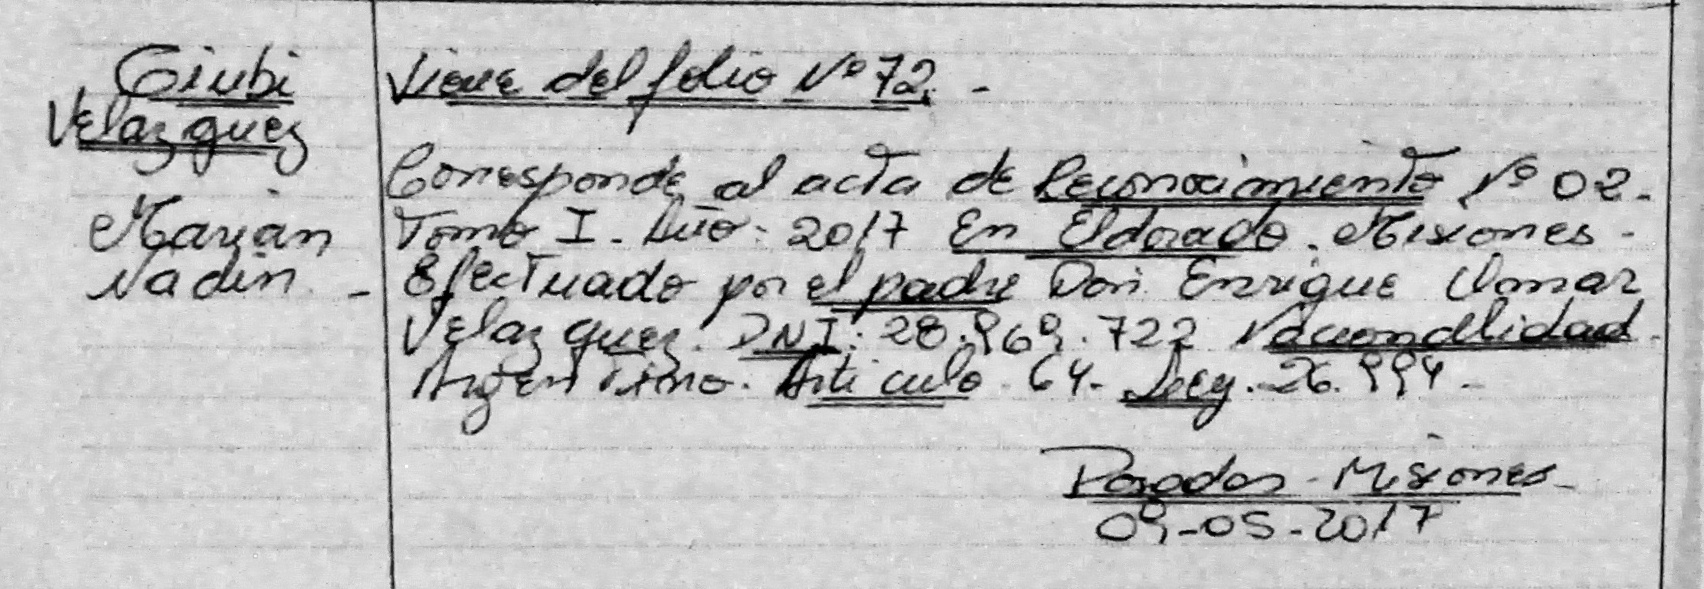 Giubi
Velazquez
Marian
Nadin. -
Viene del folio Nº 72. -
Corresponde al acta de Reconocimiento Nº 02.
Tomo I. Año: 2017 En Eldorado. Misiones -
Efectuado por el padre Don. Enrique Omar
Velazquez. DNI: 28.969.722 Nacionallidad.
Argentino. Articulo. 64. Ley. 26.994 -
Posadas - Misiones
09-05-2017